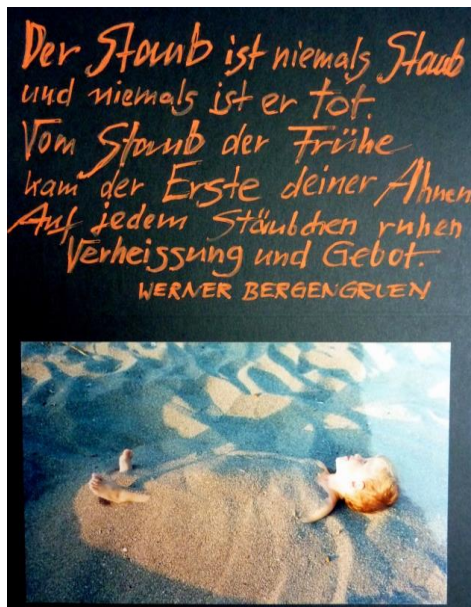 Der Staub ist niemals Staub
und niemals ist er tot.
Vom Staub der Frühe
kam der Erste deiner Ahnen
Auf jedem Stäubchen ruhen
Verheissung und Gebot.
WERNER BERGENGRUEN